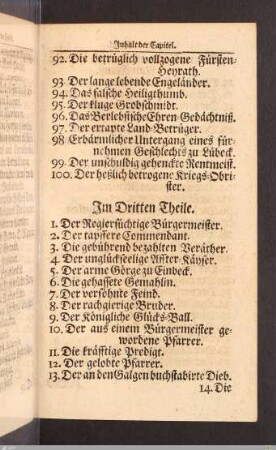 Inhalt der Capitel.
92. Die betrüglich vollzogene Fürsten-
Heyrath.
93. Der lange lebende Engeländer.
94. Das falsche Heiligthumb.
95. Der kluge Grobschmidt.
96. Das Berlebsische Ehren-Gedächtniß.
97. Der ertapte Land-Betrüger.
98. Erbärmlicher Untergang eines für-
nehmen Geschlechts zu Lübeck.
99. Der unschuldig gehenckte Rentmeist.
100. Der heßlich betrogene Kriegs-Obri-
ster.
Im Dritten Theile.
1. Der Regiersüchtige Bürgermeister.
2. Der tapffere Commendant.
3. Die gebührend bezahlten Veräther.
4. Der unglückseelige Affter-Käyser.
5. Der arme Görge zu Einbeck.
6. Die gehassete Gemahlin.
7. Der versöhnte Feind.
8. Der rachgierige Bruder.
9. Der Königliche Glücks-Ball.
10. Der aus einem Bürgermeister ge-
wordene Pfarrer.
11. Die kräfftige Predigt.
12. Der gelobte Pfarrer.
13. Der an den Galgen buchstabirte Dieb.
14. Die